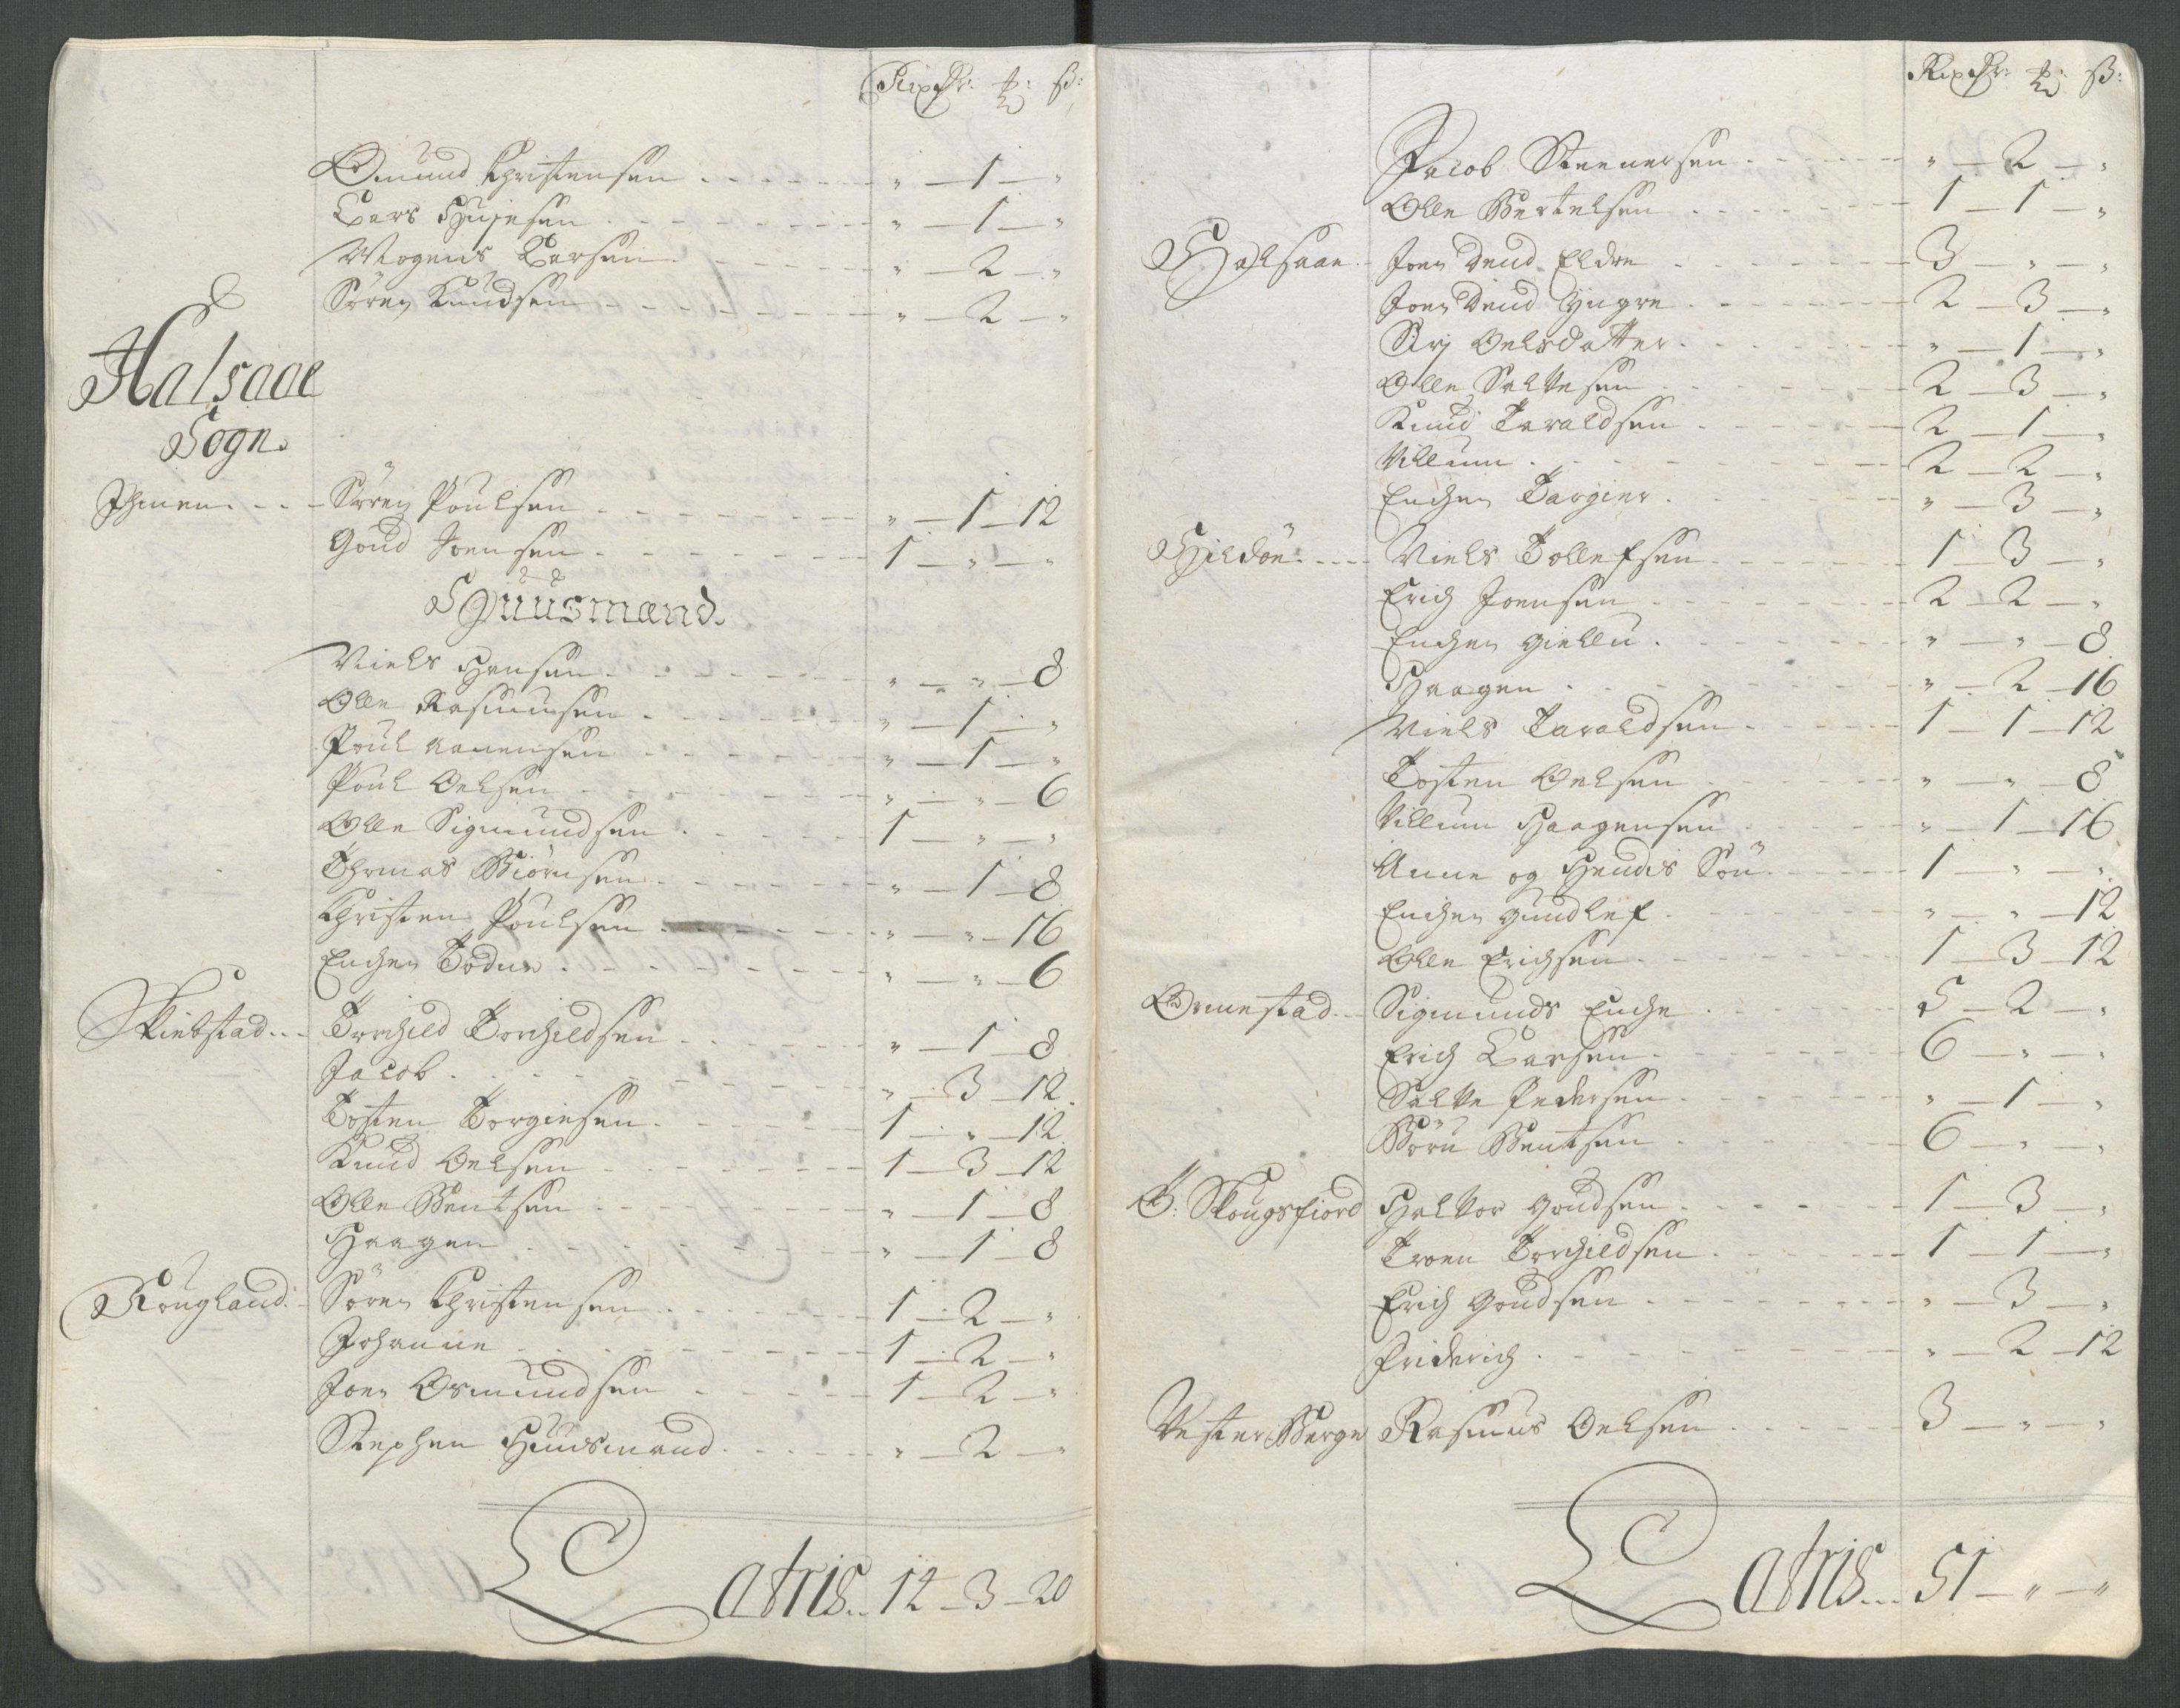 Rixdr: ℔: ß:
Omund Christensen - - - - - " — 1 — "
Lars Hujesen - - - - - " — 1 — "
Mogens Larsen - - - - - " — 2 — "
Sören Knudsen - - - - - " — 2 — "
Halsaae
Sogn.
Ihmen - - - Sören Poulsen - - - - - " — 1 — 12
Goud Joensen - - - - - 1 — " — "
Huusmænd.
Niels Hansen - - - - - " — " — 8
Olle Rasmusen - - - - - " — 1 — "
Poul Aanensen - - - - - " — 1 — "
Poul Oelsen - - - - - " — " — 6
Olle Sigmundsen - - - - - 1 — " — "
Thomas Biörnsen - - - - - " — 1 — 8
Christen Poulsen - - - - - " — " — 16
Enchen Todne - - - - - " — " — 6
Skiebstad - - - Torchild Torchildsen - - - - - " — 1 — 8
Jacob - - - - - " — 3 — 12
Tosten Torgiesen - - - - - 1 — " — 12
Knud Oelsen - - - - - 1 — 3 — 12
Olle Bentsen - - - - - " — 1 — 8
Haagen - - - - - " — 1 — 8
Rougland - Sören Christensen - - - - - 1 — 2 — "
Johanne - - - - - 1 — 2 — "
Joen Osmundsen - - - - - 1 — 2 — "
Stephen Huusmand - - - - - " — 2 — "
Latris - - 14 — 3 — 20
Rixdr: ℔: ß:
Jacob Steenersen - - - - - " — 2 — "
Olle Bertelsen - - - - - 1 — 1 — "
Halsaae - Joen dend Eldre - - - - - 3 — " — "
Joen dend Yngre - - - - - 2 — 3 — "
Siri Oelsdatter - - - - - " — 1 — "
Olle Salvesen - - - - - 2 — 3 — "
Knud Taraldsen - - - - - 2 — 1 — "
Villum - - - - - 2 — 2 — "
Enchen Targier - - - - - " — 3 — "
Hildöe - - - Niels Tollefsen - - - - - 1 — 3 — "
Erich Joensen - - - - - 2 — 2 — "
Enchen Giellu - - - - - " — " — 8
Haagen - - - - - " — 2 — 16
Niels Taraldsen - - - - - 1 — 1 — 12
Tosten Oelsen - - - - - " — " — 8
Villum Haagensen - - - - - " — 1 — 16
Anne og Hendis Sön - - - - - 1 — " — "
Enchen Gundlef - - - - - " — " — 12
Olle Erichsen - - - - - 1 — 3 — 12
Ormestad - - Sigmunds Enche - - - - - 5 — 2 — "
Erich Larsen - - - - - 6 — " — "
Salve Pedersen - - - - - " — 1 — "
Börn Bentsen - - - - - 6 — " — "
Ö: Skougsfiord Halvor Goudsen - - - - - 1 — 3 — "
Troen Torchildsen - - - - - 1 — 1 — "
Erich Goudsen - - - - - " — 3 — "
Friderich - - - - - " — 2 — 12
Vester Berge Rasmus Oelsen - - - - - 3 — " — "
Latris - - - 51 — " — "